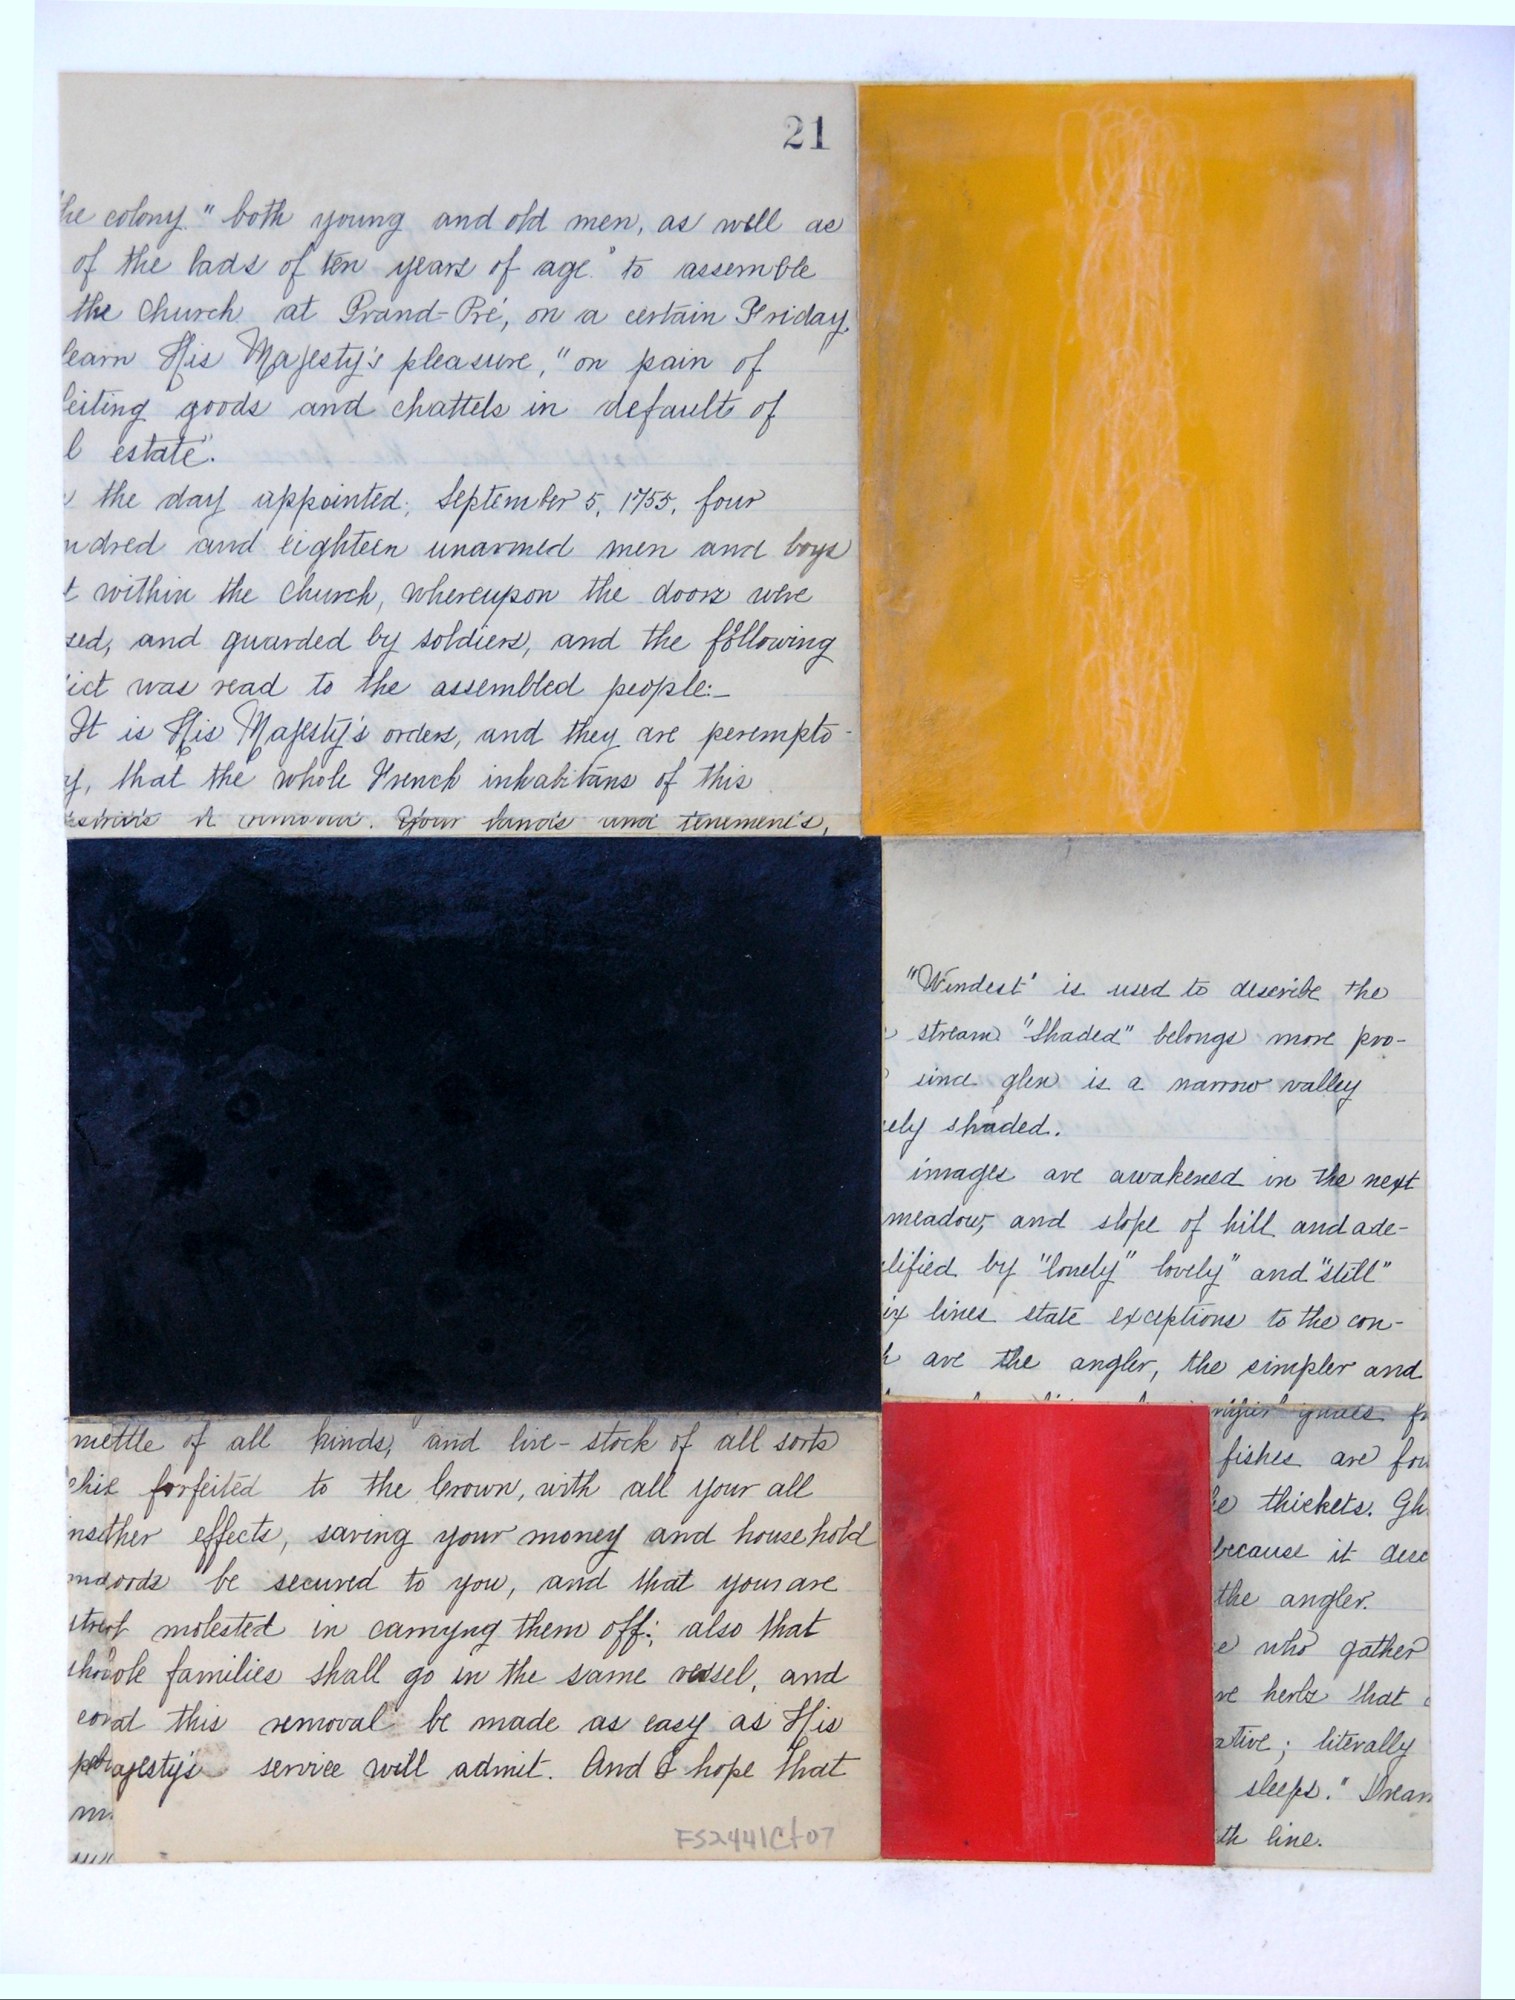 21
he colony." both young and old men, as well as
of the lads of ten years of age." to assemble
the church at Grand-Pré, on a certain Friday,
learn His Majesty's pleasure," on pain of
feiting goods and chattels in default of
l estate".
the day appointed; September 5, 1755, four
ndred and eighteen unarmed men and boys
t within the church, whereupon the doors were
sed, and guarded by soldiers, and the following
ict was read to the assembled people:—
It is His Majesty's orders, and they are perempto-
y, that the whole French inhabitans of this
Your lands and tenements,
"Windest" is used to describe the
stream "Shaded" belongs more pro-
sind glen is a narrow valley
ely shaded.
images are awakened in the next
meadow, and slope of hill and ade-
lified by "lonely" lovely" and "still"
ix lines state exceptions to the con-
h are the angler, the simpler and
mettle of all kinds, and live-stock of all sorts
forfeited to the Crown, with all your all
ther effects, saving your money and household
oods be secured to you, and that your are
molested in carryng them off; also that
ole families shall go in the same vessel, and
at this removal be made as easy as His
ajesty's service will admit. And I hope that
m
FS2441Ct07
fishes are fou
e thickets. Gh
because it desc
the angler.
e who gather
re herbs that
ative; literally
sleeps." Drean
th line.